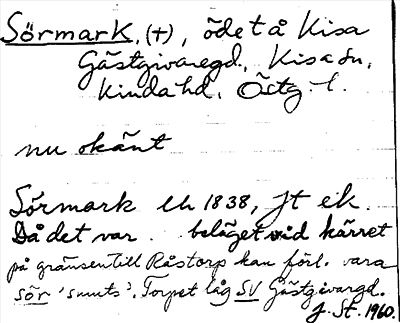 Sörmark, (+), ödet å Kisa
Gästgivaregd., Kisa sn,
Kinda hd, Östg. l.
nu okänt
Sörmark Lh 1838, Jt ek.
Då det var beläget vid kärret
på gränsen till Råstorp kan förl. vara
sör 'smuts'. Torpet låg SV Gästgivargd.
J. St. 1960.